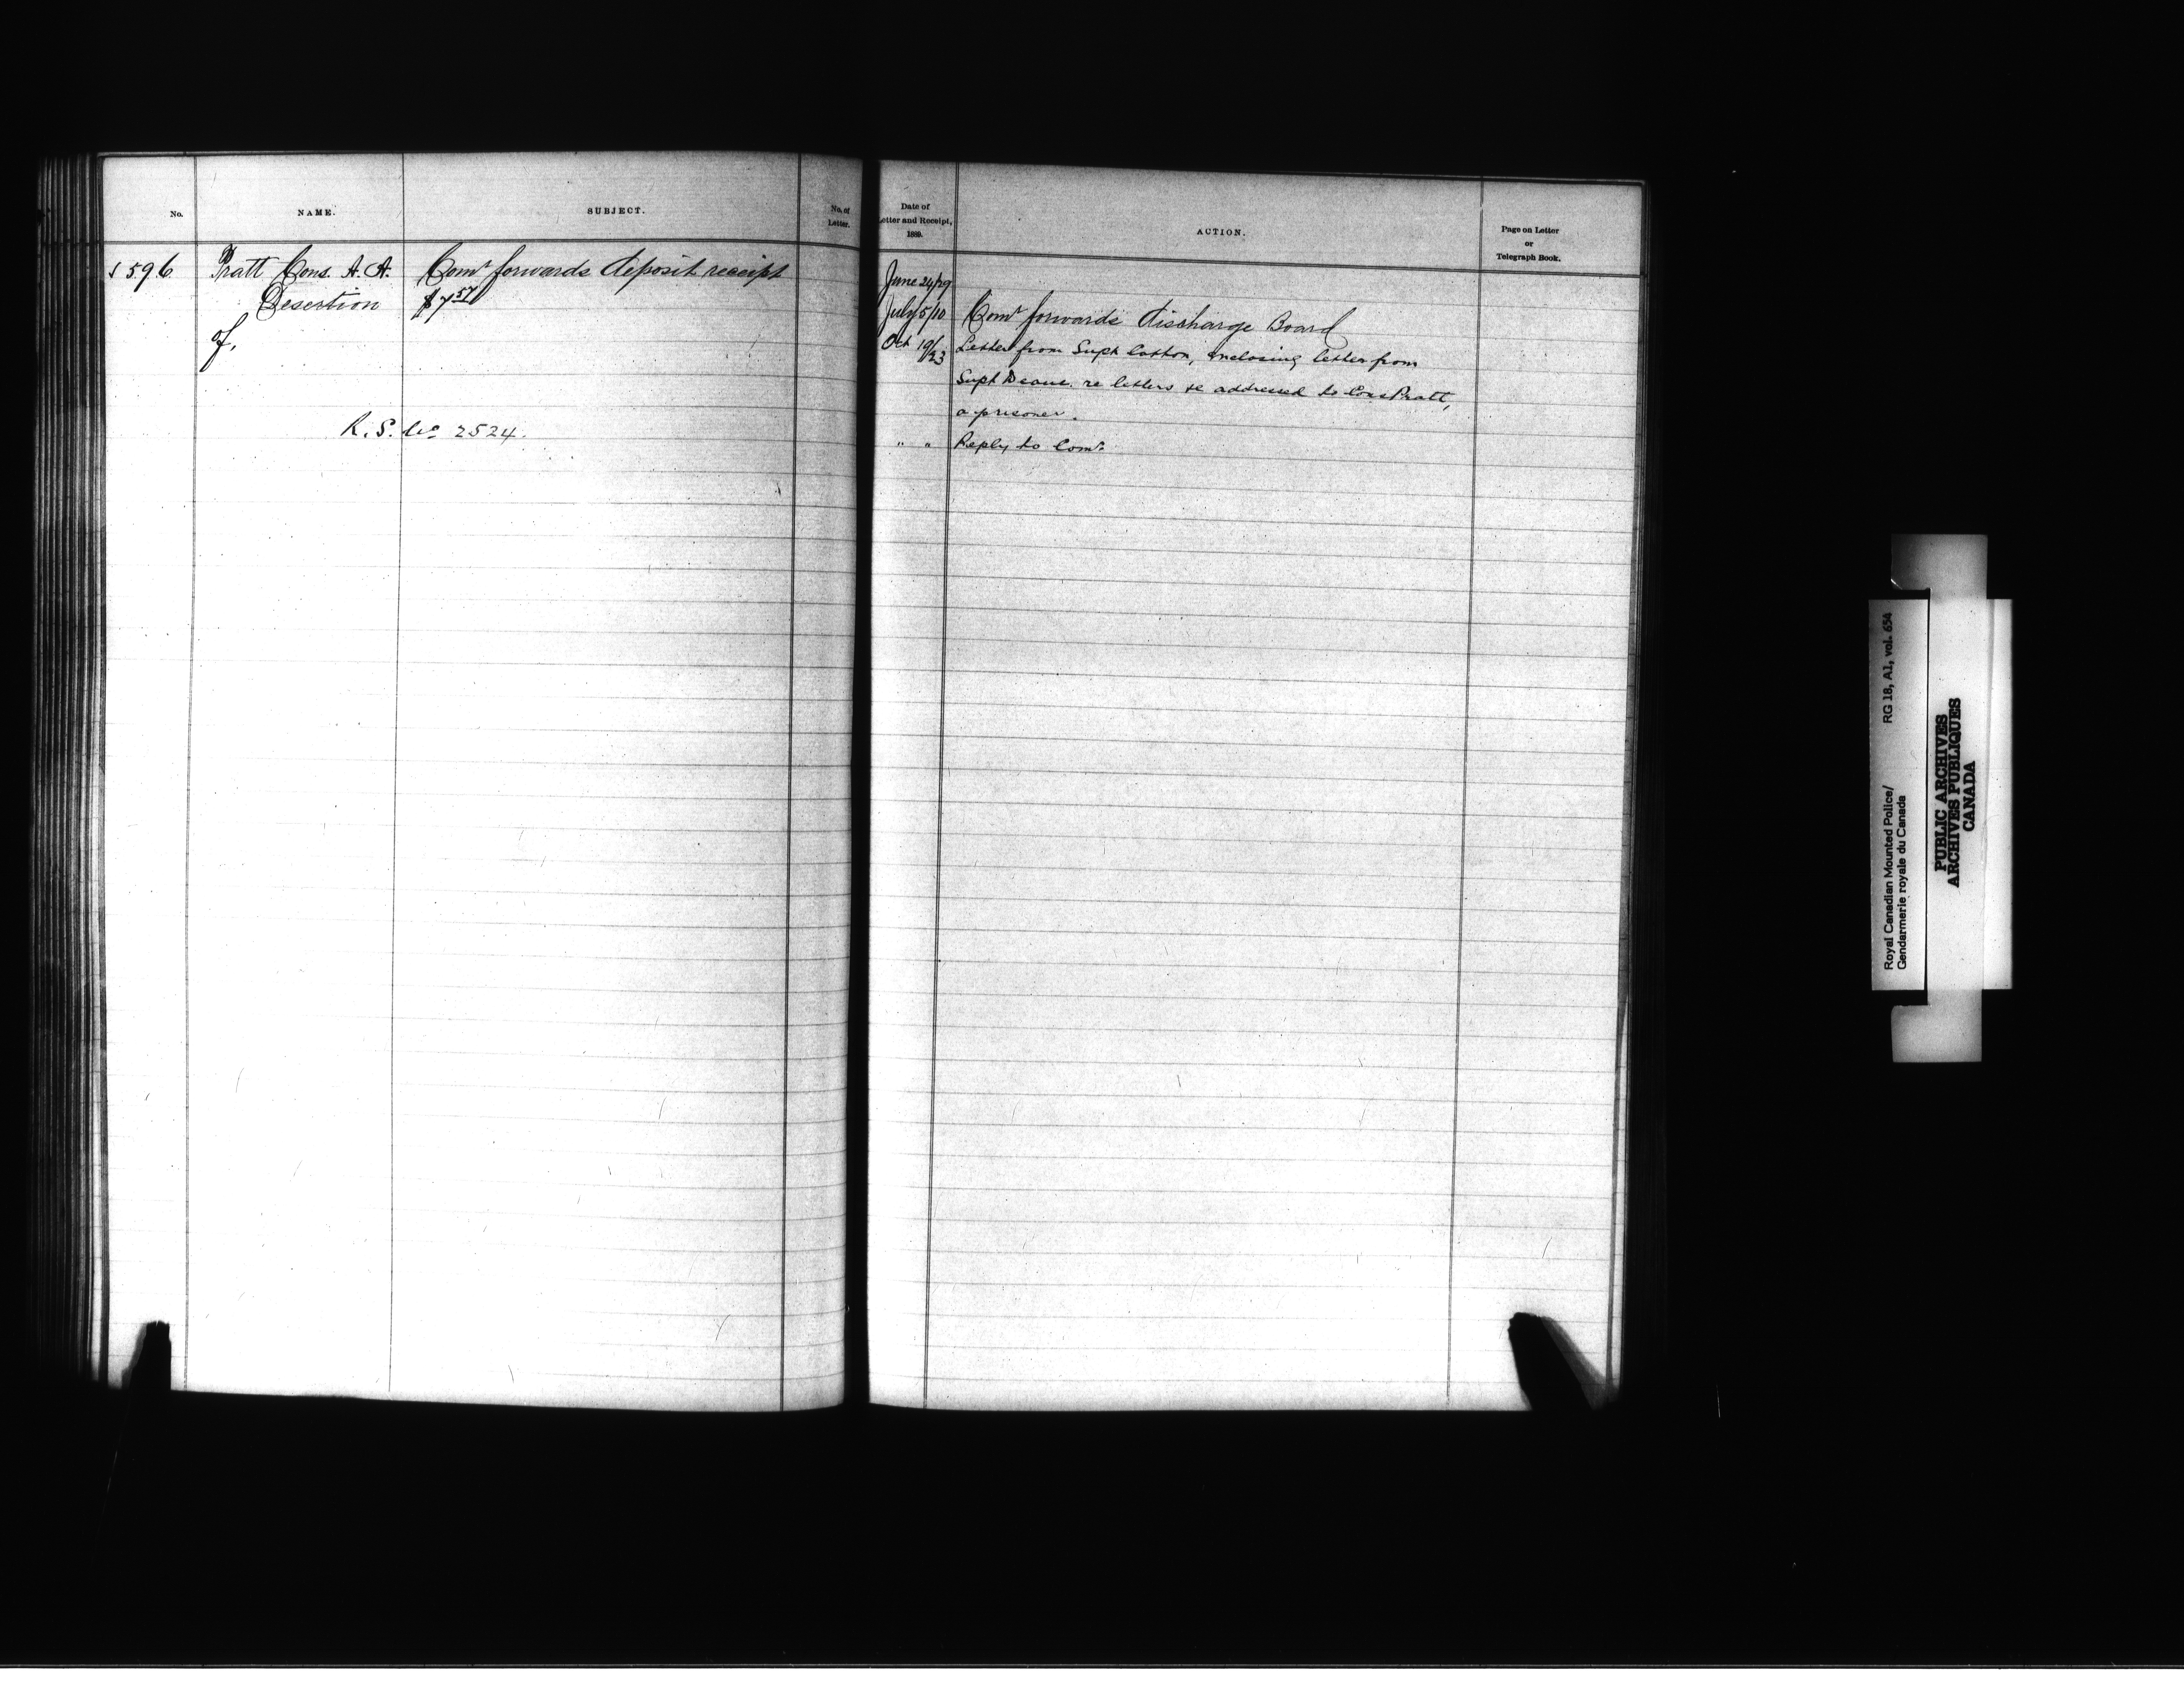 No.
NAME.
SUBJECT.
No. of
Letter.
596
Pratt Cons. A. A.
Desertion
of,
Comr forwards deposit receipt
$7.57
R. S. No 2524.
Date of
Letter and Receipt,
1889.
ACTION.
Page on Letter
or
Telegraph Book.
June 24/29
July 5/10 Comr forwards discharge Board
Oct 19/23 Letter from Supt Cotton, enclosing letter from
Supt Deane. re letters &c addressed to Cons Pratt,
a prisoner.
" " Reply to Comr.
Royal Canadian Mounted Police/ RG 18, A1, vol. 654
Gendarmerie royale du Canada
PUBLIC ARCHIVES
ARCHIVES PUBLIQUES
CANADA